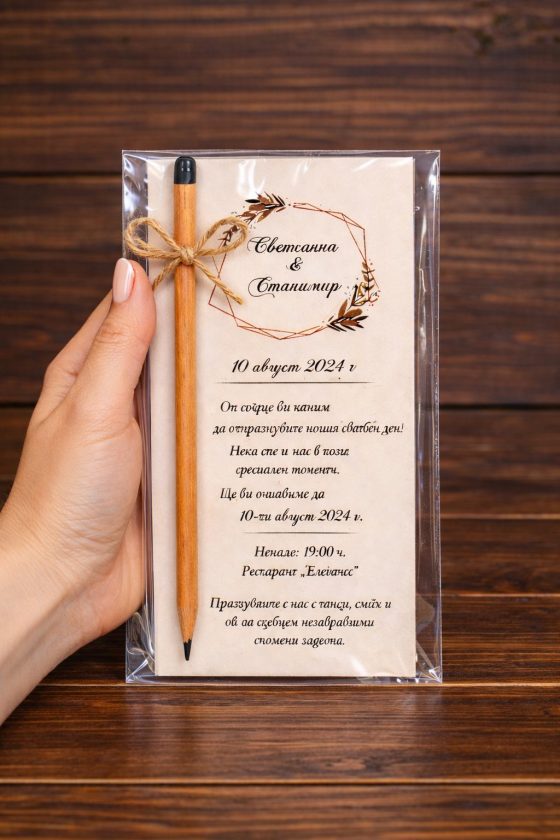 Светсанна
&
Станимир
10 август 2024 г
От сѹрце ви каним
да отпразнувите ношия сватбен ден!
Нека сте и нас в този
сресиален томенти.
Ще ви очиавиме да
10-ти август 2024 г.
Ненале: 19:00 ч.
Ресторант „Елеганс”
Празнувяите с нас с танци, смїх и
ов аа съебцем незавравзими
спомени задеона.